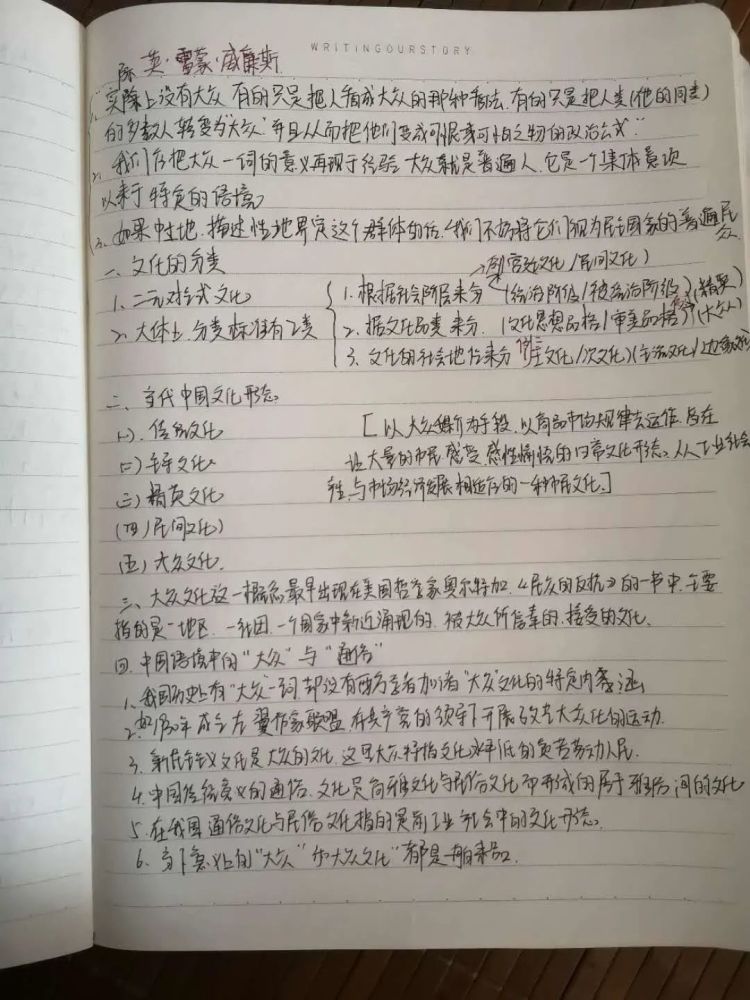 WRITINGOURSTORY
英·雷蒙·威廉斯
1. 实际上没有大众,有的只是把人看成大众的那种看法,有的只是把人类(他的同类)
的多数人转变为“大众”并且从而把他们变成可恨或可怕之物的政治公式.”
2. 我们应把大众一词的意义再现于经验 大众就是普通人,它是一个集体
以来于特定的语境。
3. 如果中性地,描述性地界定这个群体的话,我们不妨将它们视为民主国家的普通民众
一、文化的分类
→宫廷文化/民间文化)
1. 二元对立式文化
1. 根据社会阶层来分 (统治阶级/被统治阶级)(精英)
2. 大体上,分类标准有2类
2. 据文化品类来分. (文化思想品格/审美品格)(大众)
3. 文化的社会地位来分 主文化/次文化)(主流文化/边缘文化
二、当代中国文化形态。
(一). 传统文化
[以大众媒介为手段,以商品市场规律去运作,旨在
(二) 主导文化
让大量的市民感受感性愉悦的日常文化形态。从工业社会
(三) 精英文化
与市场经济发展相适应的一种市民文化.]
(四) 民间文化
(五) 大众文化.
三、大众文化这一概念最早出现在美国哲学家奥尔特加.《民众的反抗》的一书中,主要
指的是一地区、一社团、一个国家中新近涌现的,被大众所信奉的,接受的文化.
四. 中国语境中的“大众”与“通俗”
1. 我国历史上有“大众”一词,却没有西方学者加诸“大众”文化的特定内涵
2. 成立左翼作家联盟,在共产党的领导下开展文艺大众化的运动.
3. 新民主主义文化是大众的文化,这里大众特指文化水平低的负苦劳动人民.
4. 中国传统意义的通俗,文化是高雅文化与民俗文化而形成的居于雅俗间的文化
5. 在我国,通俗文化与民俗文化指的是前工业社会中的文化形态.
6. 当下意义上的“大众”和“大众文化”都是舶来品.